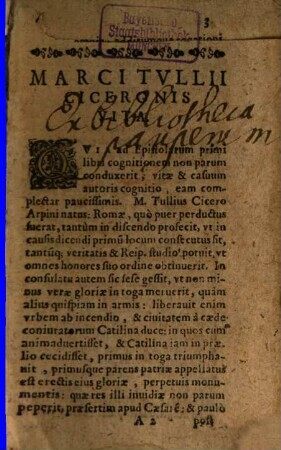 3
Bayerische
Staatsbibliothek
München
MARCI TVLLII
CICERONIS
VITA.
Ex Bibliotheca
QVIA ad Epistolarum primi
libri cognitionem non parum
conduxerit, vitæ & casuum
autoris cognitio, eam com-
plectar paucissimis. M. Tullius Cicero
Arpini natus: Romæ, quò puer perductus
fuerat, tantùm in discendo profecit, vt in
causis dicendi primũ locum consecutus sit,
tantũq; veritatis & Reip. studio potuit, vt
omnes honores suo ordine obtinuerit. In
consulatu autem sic sese gessit, vt non mi-
nus veræ gloriæ in toga meruerit, quàm
alius quispiam in armis: liberauit enim
vrbem ab incendio, & ciuitatem à cæde
coniuratorum Catilina duce: in quos cùm
animaduertisset, & Catilina iam in præ-
lio cecidisset, primus in toga triumpha-
uit, primusque parens patriæ appellatus
est erectis eius gloriæ, perpetuis monu-
mentis: quæ res illi inuidiæ non parum
peperit, præsertim apud Cæsarẽ: & paulò
A 2 post